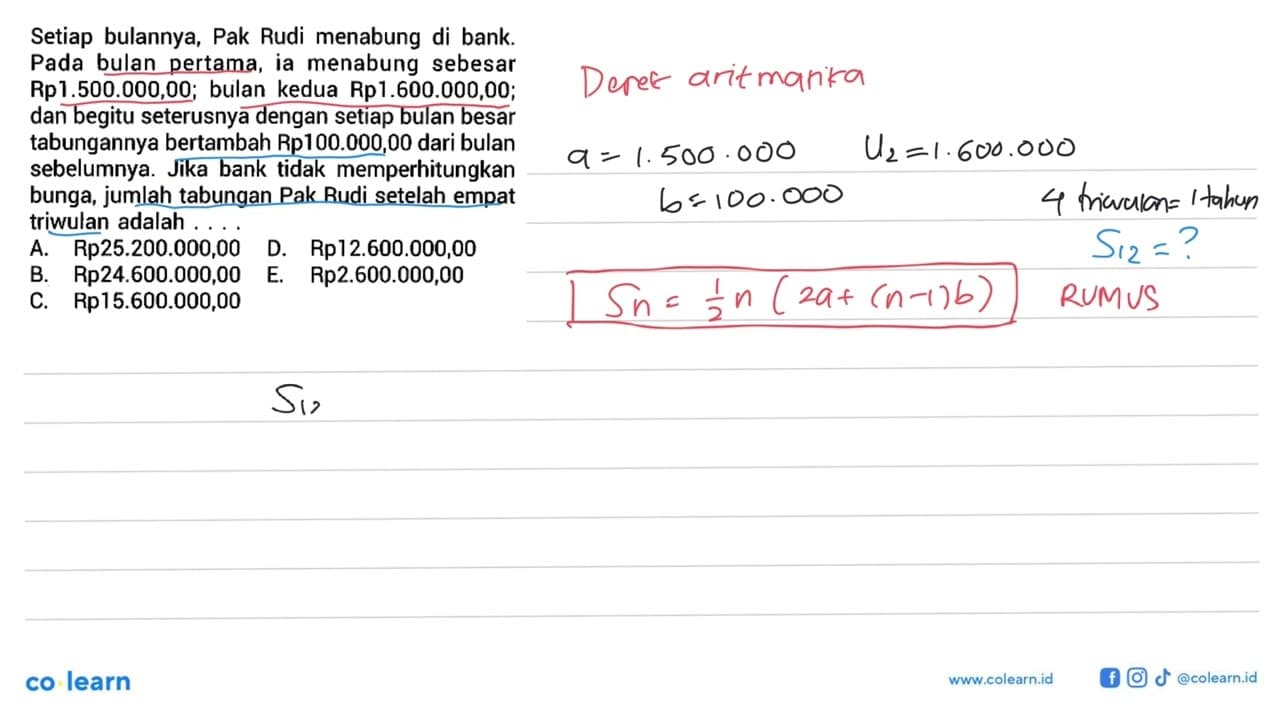 Setiap bulannya, Pak Rudi menabung di bank.
Pada bulan pertama, ia menabung sebesar
Rp1.500.000,00; bulan kedua Rp1.600.000,00;
dan begitu seterusnya dengan setiap bulan besar
tabungannya bertambah Rp100.000,00 dari bulan
sebelumnya. Jika bank tidak memperhitungkan
bunga, jumlah tabungan Pak Rudi setelah empat
triwulan adalah . . . .
A. Rp25.200.000,00 D. Rp12.600.000,00
B. Rp24.600.000,00 E. Rp2.600.000,00
C. Rp15.600.000,00
Deret aritmatika
a = 1.500.000 U2 = 1.600.000
b = 100.000
4 triwulan = 1 tahun
S12 = ?
Sn = 1/2 n (2a + (n-1)b) RUMUS
S12
co learn
www.colearn.id
@colearn.id